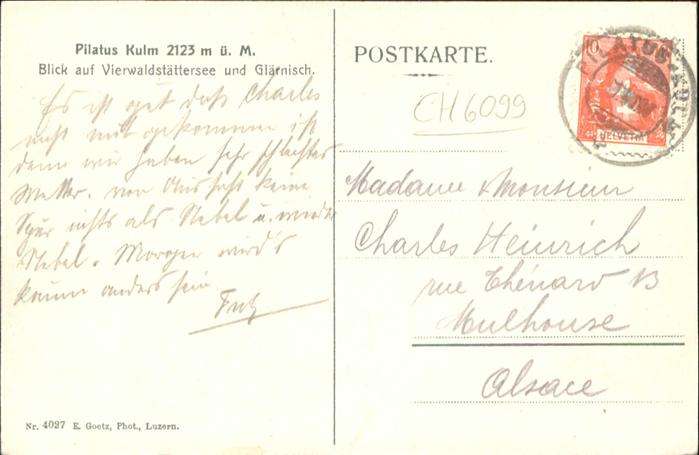 Pilatus Kulm 2123 m ü. M.
Blick auf Vierwaldstättersee und Glärnisch.
Es ist gut daß Charles
nicht mit gekommen ist
denn wir haben sehr schlechtes
Wetter. von Aussicht keine
Spur nichts als Nebel u. wieder
Nebel. Morgen wird's
kaum anders sein
POSTKARTE.
CH6099
10
HELVETIA
PILATUS-KULM
Madame & Monsieur
Charles Heinrich
rue Thénard 13
Mulhouse
Alsace
Nr. 4027 E. Goetz, Phot., Luzern.